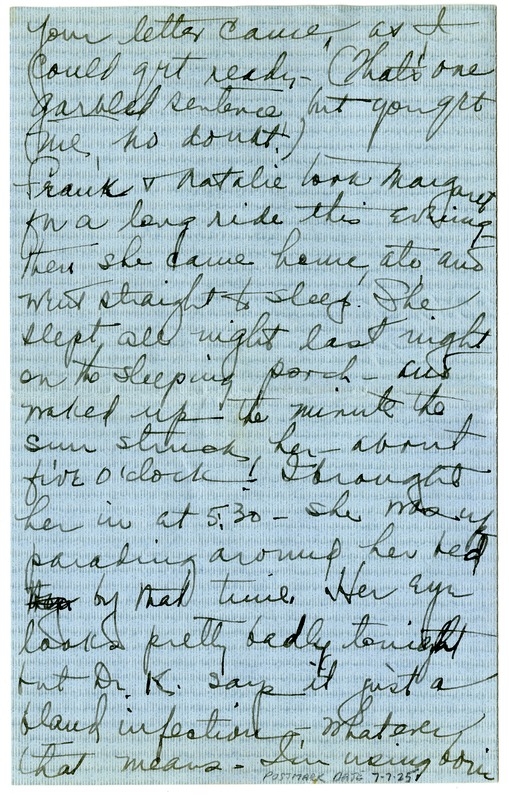 Your letter came, as I
could get ready - (that's one
garbled sentence, but you get
me, no doubt!)
Frank & Natalie took Margaret
for a long ride this evening -
then she came home, ate, and
went straight to sleep. She
slept all night last night
on the sleeping porch - and
waked up the minute the
sun struck her - about
five o'clock! I brought
her in at 5:30 - she was up
parading around her bed
by that time. Her eye
looks pretty badly tonight
but Dr. K. says it just a
bland infection - whatever
that means - I'm using boric
POSTMARK DATE 7-7-25